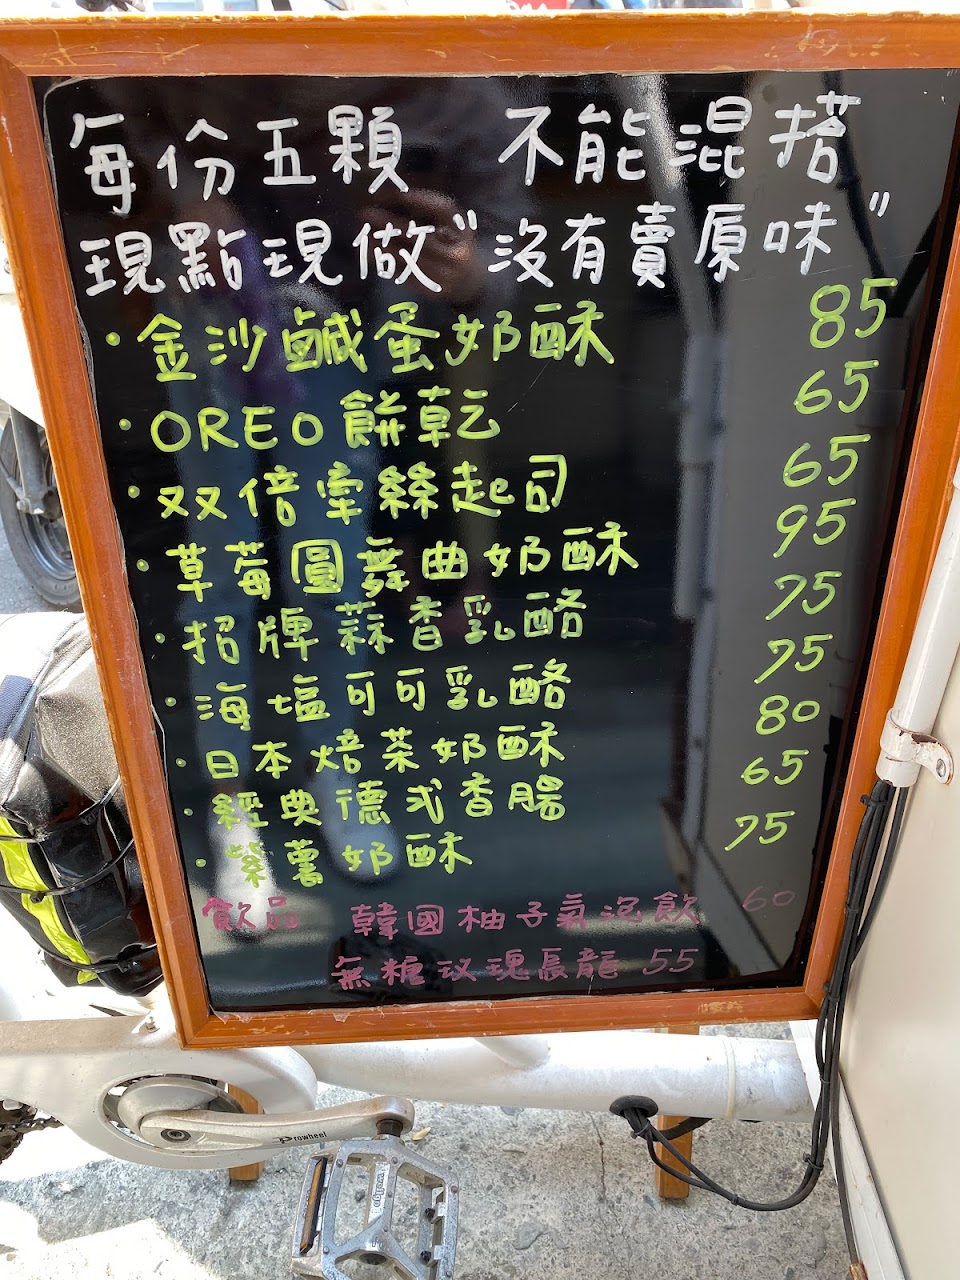 每份五顆 不能混搭
現點現做"沒有賣原味"
·金沙鹹蛋奶酥 85
·OREO餅乾 65
·双倍牽絲起司 65
·草莓圓舞曲奶酥 95
·招牌蒜香乳酪 75
·海塩可可乳酪 75
·日本焙茶奶酥 80
·經典德式香腸 65
·紫薯奶酥 75
飲品 韓國柚子氣泡飲 60
無糖玫瑰烏龍 55
Prowheel
wellgo